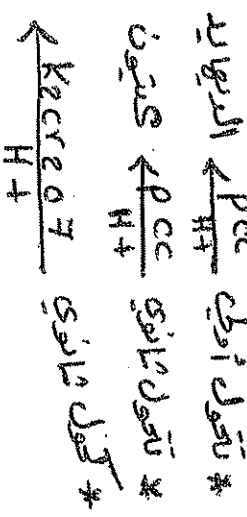 * كحول أولي PCC H+ ← الديهايد
* كحول ثانوي PCC H+ ← كيتون
* كحول ثانوي K2Cr2O7 H+ ←